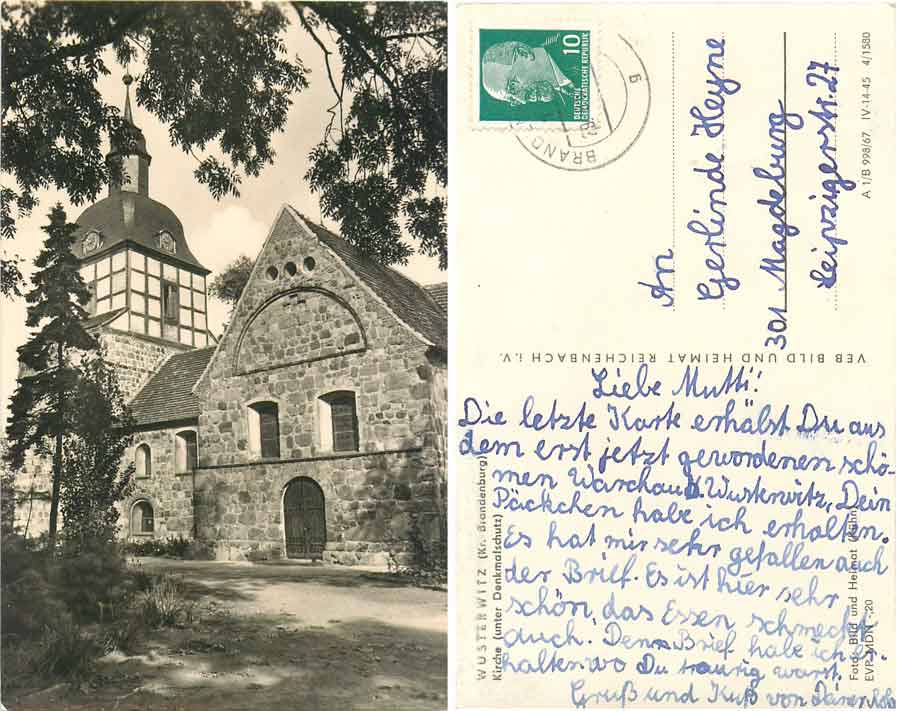 10
DEUTSCHE
DEMOKRATISCHE REPUBLIK
BRAND
6
An
Gerlinde Heyne
301 Magdeburg
Leipzigerstr. 27
A 1/B 998/67 IV-14-45 4/1580
VEB BILD UND HEIMAT REICHENBACH i. V.
WUSTERWITZ (Kr. Brandenburg)
Kirche (unter Denkmalschutz)
Foto: Bild und Heimat
EVP MDN -,20
Liebe Mutti!
Die letzte Karte erhälst Du aus
dem erst jetzt gewordenen schö-
nen Warchau Wusterwitz, Dein
Päckchen habe ich erhalten.
Es hat mir sehr gefallen auch
der Brief. Es ist hier sehr
schön, das Essen schmeckt
auch. Denn Brief habe ich er-
halten wo Du traurig warst.
Gruß und Kuß von